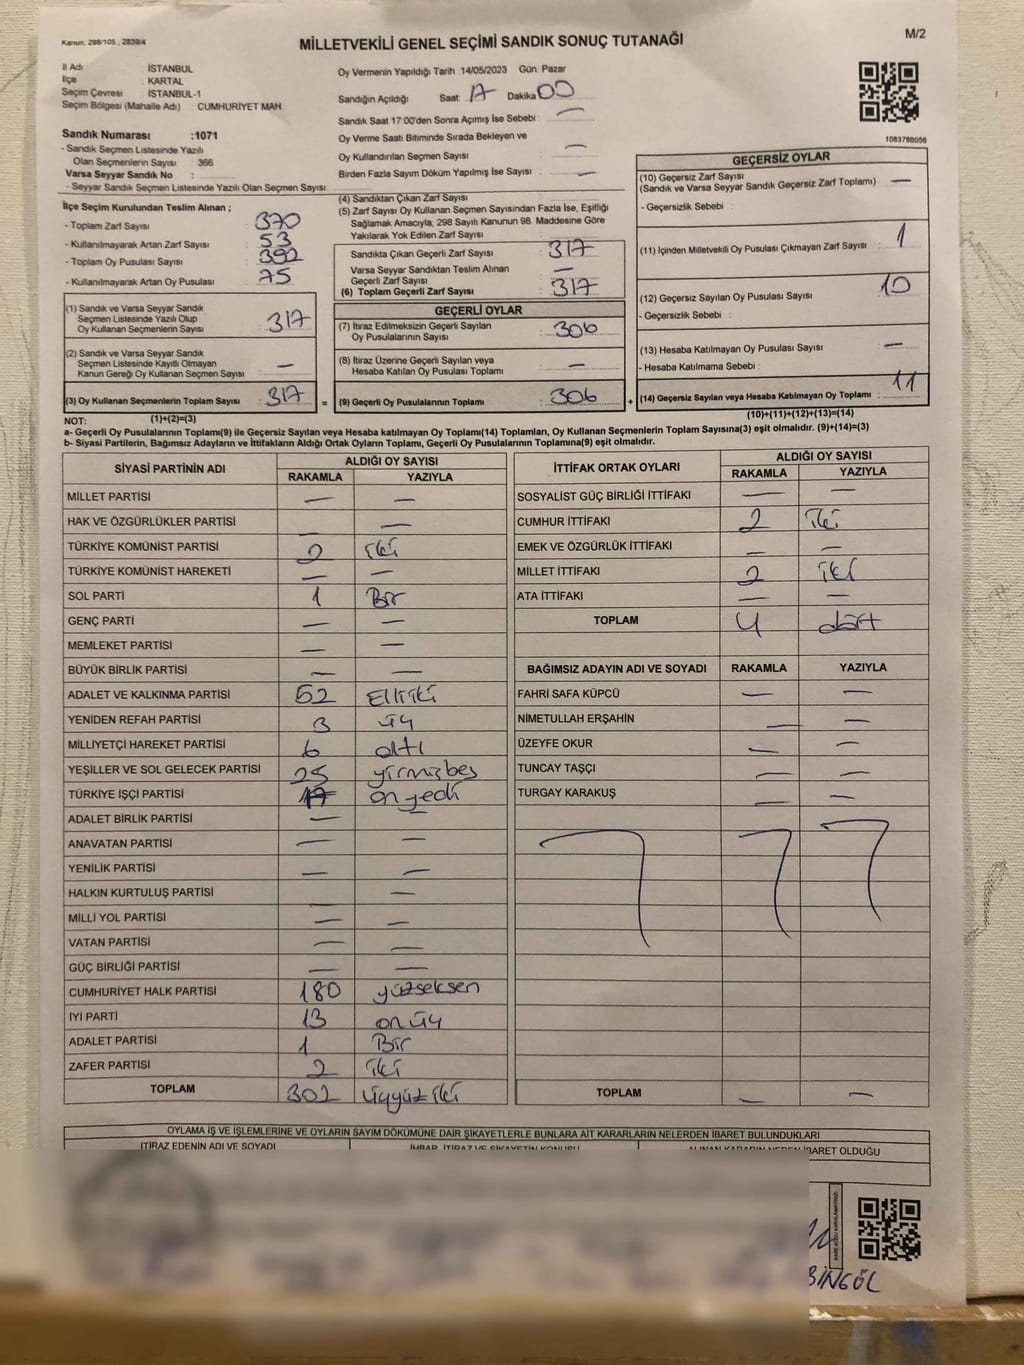 Kanun, 298/105 , 2839/4
M/2
MİLLETVEKİLİ GENEL SEÇİMİ SANDIK SONUÇ TUTANAĞI
İl Adı : İSTANBUL
İlçe : KARTAL
Seçim Çevresi : İSTANBUL-1
Seçim Bölgesi (Mahalle Adı) : CUMHURİYET MAH
Sandık Numarası :1071
- Sandık Seçmen Listesinde Yazılı
Olan Seçmenlerin Sayısı : 366
Varsa Seyyar Sandık No :
- Seyyar Sandık Seçmen Listesinde Yazılı Olan Seçmen Sayısı:
Oy Vermenin Yapıldığı Tarih 14/05/2023 Gün: Pazar
Sandığın Açıldığı Saat: 17 Dakika: 00
Sandık Saat 17:00'den Sonra Açımış İse Sebebi : —
Oy Verme Saati Bitiminde Sırada Bekleyen ve
Oy Kullandırılan Seçmen Sayısı : —
Birden Fazla Sayım Döküm Yapılmış İse Sayısı : —
1083766056
İlçe Seçim Kurulundan Teslim Alınan ;
- Toplam Zarf Sayısı : 370
- Kullanılmayarak Artan Zarf Sayısı : 53
- Toplam Oy Pusulası Sayısı : 392
- Kullanılmayarak Artan Oy Pusulası : 75
(1) Sandık ve Varsa Seyyar Sandık
Seçmen Listesinde Yazılı Olup
Oy Kullanan Seçmenlerin Sayısı : 317
(2) Sandık ve Varsa Seyyar Sandık
Seçmen Listesinde Kayıtlı Olmayan
Kanun Gereği Oy Kullanan Seçmen Sayısı : —
(3) Oy Kullanan Seçmenlerin Toplam Sayısı : 317
(1)+(2)=(3)
(4) Sandıktan Çıkan Zarf Sayısı :
(5) Zarf Sayısı Oy Kullanan Seçmen Sayısından Fazla İse, Eşitliği
Sağlamak Amacıyla; 298 Sayılı Kanunun 98. Maddesine Göre
Yakılarak Yok Edilen Zarf Sayısı :
Sandıkta Çıkan Geçerli Zarf Sayısı : 317
Varsa Seyyar Sandıktan Teslim Alınan
Geçerli Zarf Sayısı : —
(6) Toplam Geçerli Zarf Sayısı : 317
GEÇERLİ OYLAR
(7) İtiraz Edilmeksizin Geçerli Sayılan
Oy Pusulalarının Sayısı : 306
(8) İtiraz Üzerine Geçerli Sayılan veya
Hesaba Katılan Oy Pusulası Toplamı : —
= (9) Geçerli Oy Pusulalarının Toplamı : 306 +
GEÇERSİZ OYLAR
(10) Geçersiz Zarf Sayısı
(Sandık ve Varsa Seyyar Sandık Geçersiz Zarf Toplamı) : —
- Geçersizlik Sebebi :
(11) İçinden Milletvekili Oy Pusulası Çıkmayan Zarf Sayısı : 1
(12) Geçersiz Sayılan Oy Pusulası Sayısı : 10
- Geçersizlik Sebebi :
(13) Hesaba Katılmayan Oy Pusulası Sayısı : —
- Hesaba Katılmama Sebebi :
(14) Geçersiz Sayılan veya Hesaba Katılmayan Oy Toplamı : 11
(10)+(11)+(12)+(13)=(14)
NOT:
a- Geçerli Oy Pusulalarının Toplamı(9) ile Geçersiz Sayılan veya Hesaba katılmayan Oy Toplamı(14) Toplamları, Oy Kullanan Seçmenlerin Toplam Sayısına(3) eşit olmalıdır. (9)+(14)=(3)
b- Siyasi Partilerin, Bağımsız Adayların ve İttifakların Aldığı Ortak Oyların Toplamı, Geçerli Oy Pusulalarının Toplamına(9) eşit olmalıdır.
SİYASİ PARTİNİN ADI ALDIĞI OY SAYISI
RAKAMLA YAZIYLA
MİLLET PARTİSİ — —
HAK VE ÖZGÜRLÜKLER PARTİSİ — —
TÜRKİYE KOMÜNİST PARTİSİ 2 iki
TÜRKİYE KOMÜNİST HAREKETİ — —
SOL PARTİ 1 Bir
GENÇ PARTİ — —
MEMLEKET PARTİSİ — —
BÜYÜK BİRLİK PARTİSİ — —
ADALET VE KALKINMA PARTİSİ 52 Elliiki
YENİDEN REFAH PARTİSİ 3 üç
MİLLİYETÇİ HAREKET PARTİSİ 6 altı
YEŞİLLER VE SOL GELECEK PARTİSİ 25 yirmibeş
TÜRKİYE İŞÇİ PARTİSİ 17 onyedi
ADALET BİRLİK PARTİSİ — —
ANAVATAN PARTİSİ — —
YENİLİK PARTİSİ — —
HALKIN KURTULUŞ PARTİSİ — —
MİLLİ YOL PARTİSİ — —
VATAN PARTİSİ — —
GÜÇ BİRLİĞİ PARTİSİ — —
CUMHURİYET HALK PARTİSİ 180 yüzseksen
İYİ PARTİ 13 onüç
ADALET PARTİSİ 1 Bir
ZAFER PARTİSİ 2 iki
TOPLAM 302 üçyüziki
İTTİFAK ORTAK OYLARI ALDIĞI OY SAYISI
RAKAMLA YAZIYLA
SOSYALİST GÜÇ BİRLİĞİ İTTİFAKI — —
CUMHUR İTTİFAKI 2 iki
EMEK VE ÖZGÜRLÜK İTTİFAKI — —
MİLLET İTTİFAKI 2 iki
ATA İTTİFAKI — —
TOPLAM 4 dört
BAĞIMSIZ ADAYIN ADI VE SOYADI RAKAMLA YAZIYLA
FAHRİ SAFA KÜPCÜ — —
NİMETULLAH ERŞAHİN — —
ÜZEYFE OKUR — —
TUNCAY TAŞÇI — —
TURGAY KARAKUŞ — —
TOPLAM — —
OYLAMA İŞ VE İŞLEMLERİNE VE OYLARIN SAYIM DÖKÜMÜNE DAİR ŞİKAYETLERLE BUNLARA AİT KARARLARIN NELERDEN İBARET BULUNDUKLARI
İTİRAZ EDENİN ADI VE SOYADI İHBAR, İTİRAZ VE ŞİKAYETİN KONUSU ALINAN KARARIN NEDEN İBARET OLDUĞU
BİNGÖL